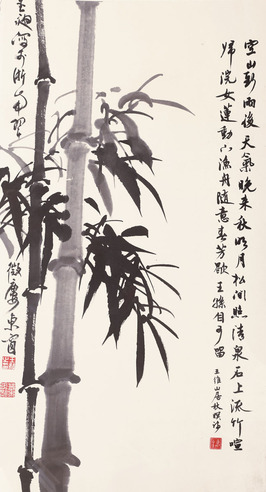 空山新雨後天氣晚来秋明月松間照清泉石上流竹喧
歸浣女蓮動下漁舟隨意春芳歇王孫自可留
王維山居秋暝詩
寫於浙